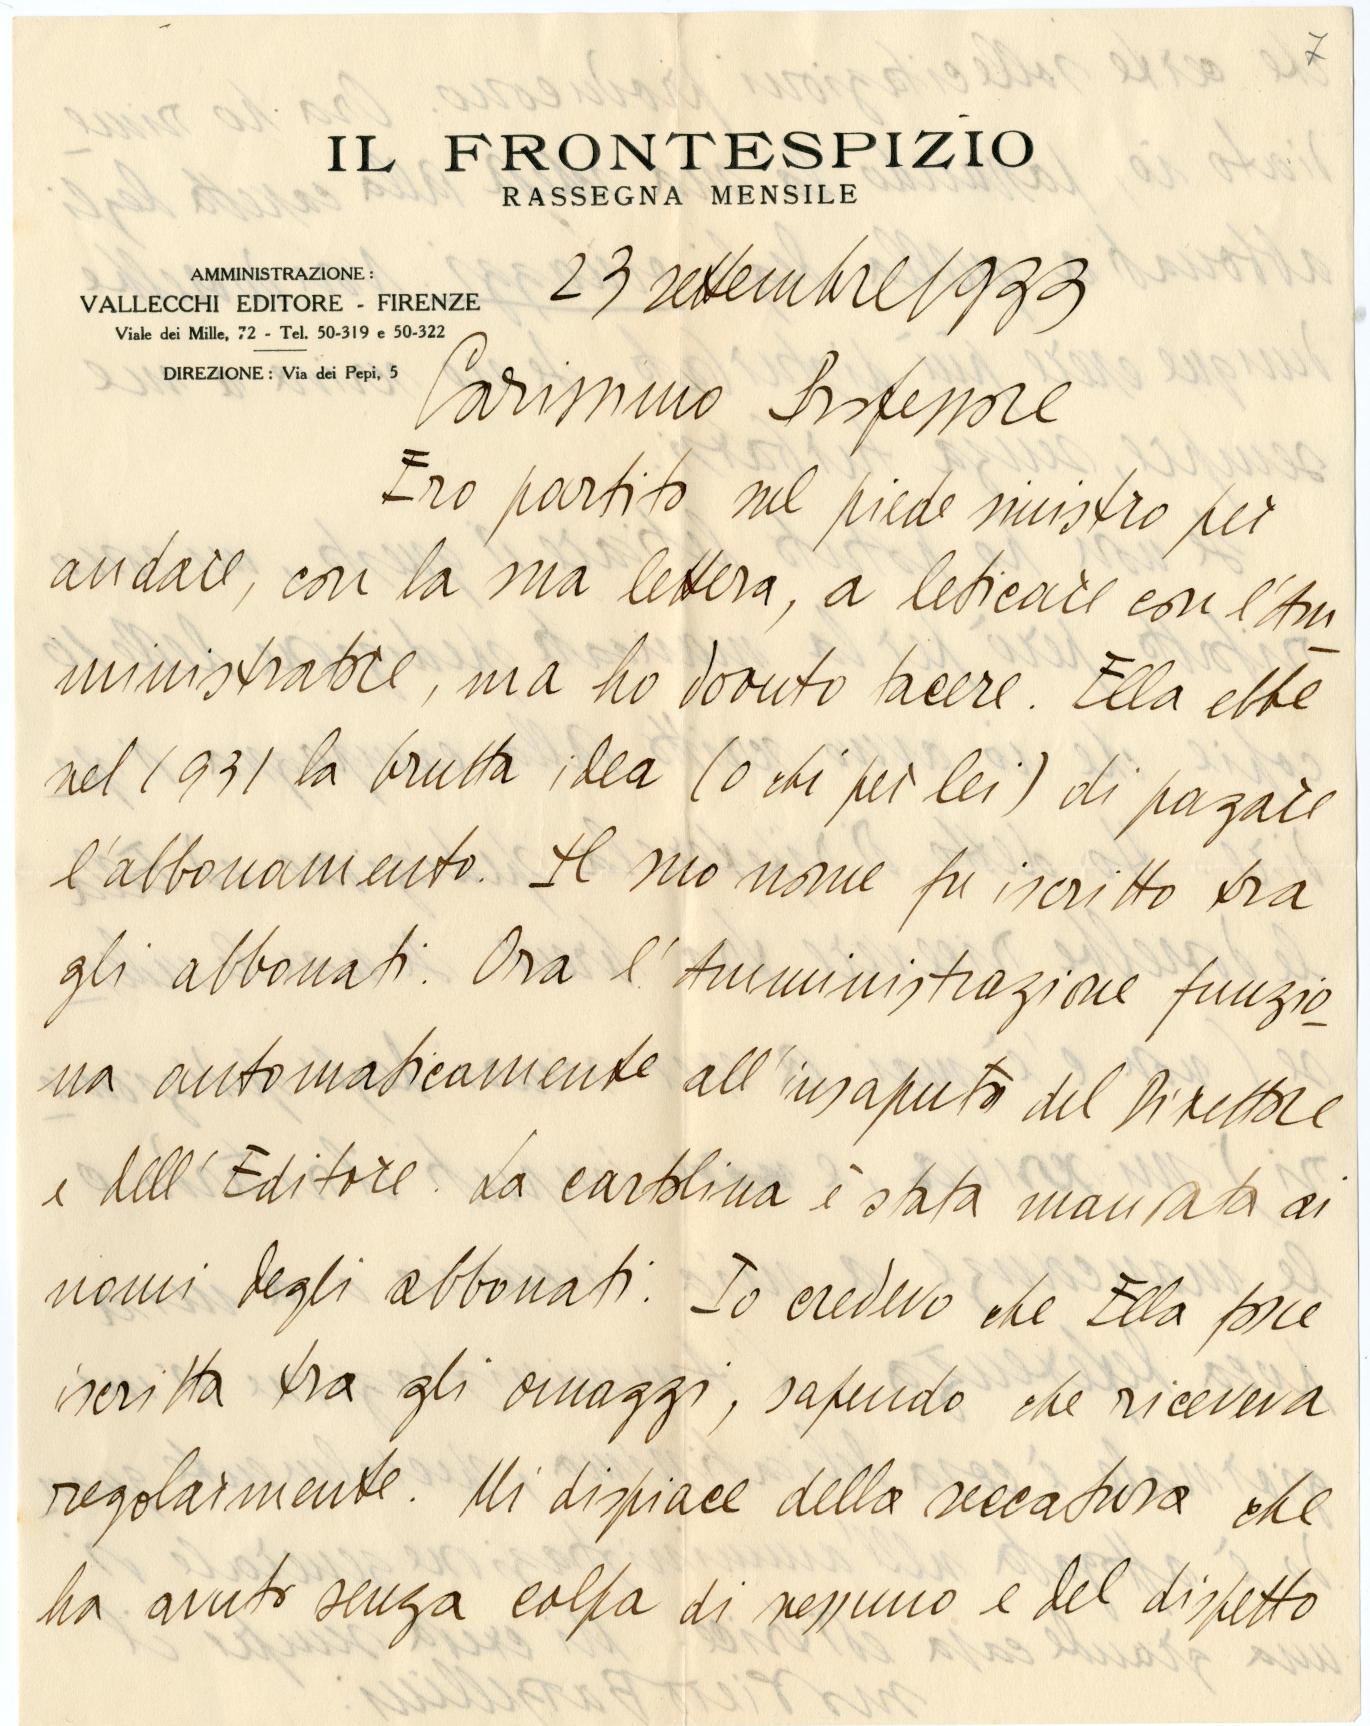 7
IL FRONTESPIZIO
RASSEGNA MENSILE
AMMINISTRAZIONE:
VALLECCHI EDITORE - FIRENZE
Viale dei Mille, 72 - Tel. 50-319 e 50-322
DIREZIONE: Via dei Pepi, 5
23 settembre 1933
Carissimo Professore
Ero partito sul piede sinistro per
andare, con la sua lettera, a leticare con l'Am
ministratore, ma ho dovuto tacere. Ella ebbe
nel 1931 la brutta idea (o chi per lei) di pagare
l'abbonamento. Il suo nome fu iscritto tra
gli abbonati. Ora l'Amministrazione funzio
na automaticamente all'insaputo del Direttore
e dell'Editore. La cartolina è stata mandata ai
nomi degli abbonati. Io credevo che Ella fosse
iscritta tra gli omaggi, sapendo che riceveva
regolarmente. Mi dispiace della seccatura che
ha avuto senza colpa di nessuno e del dispetto